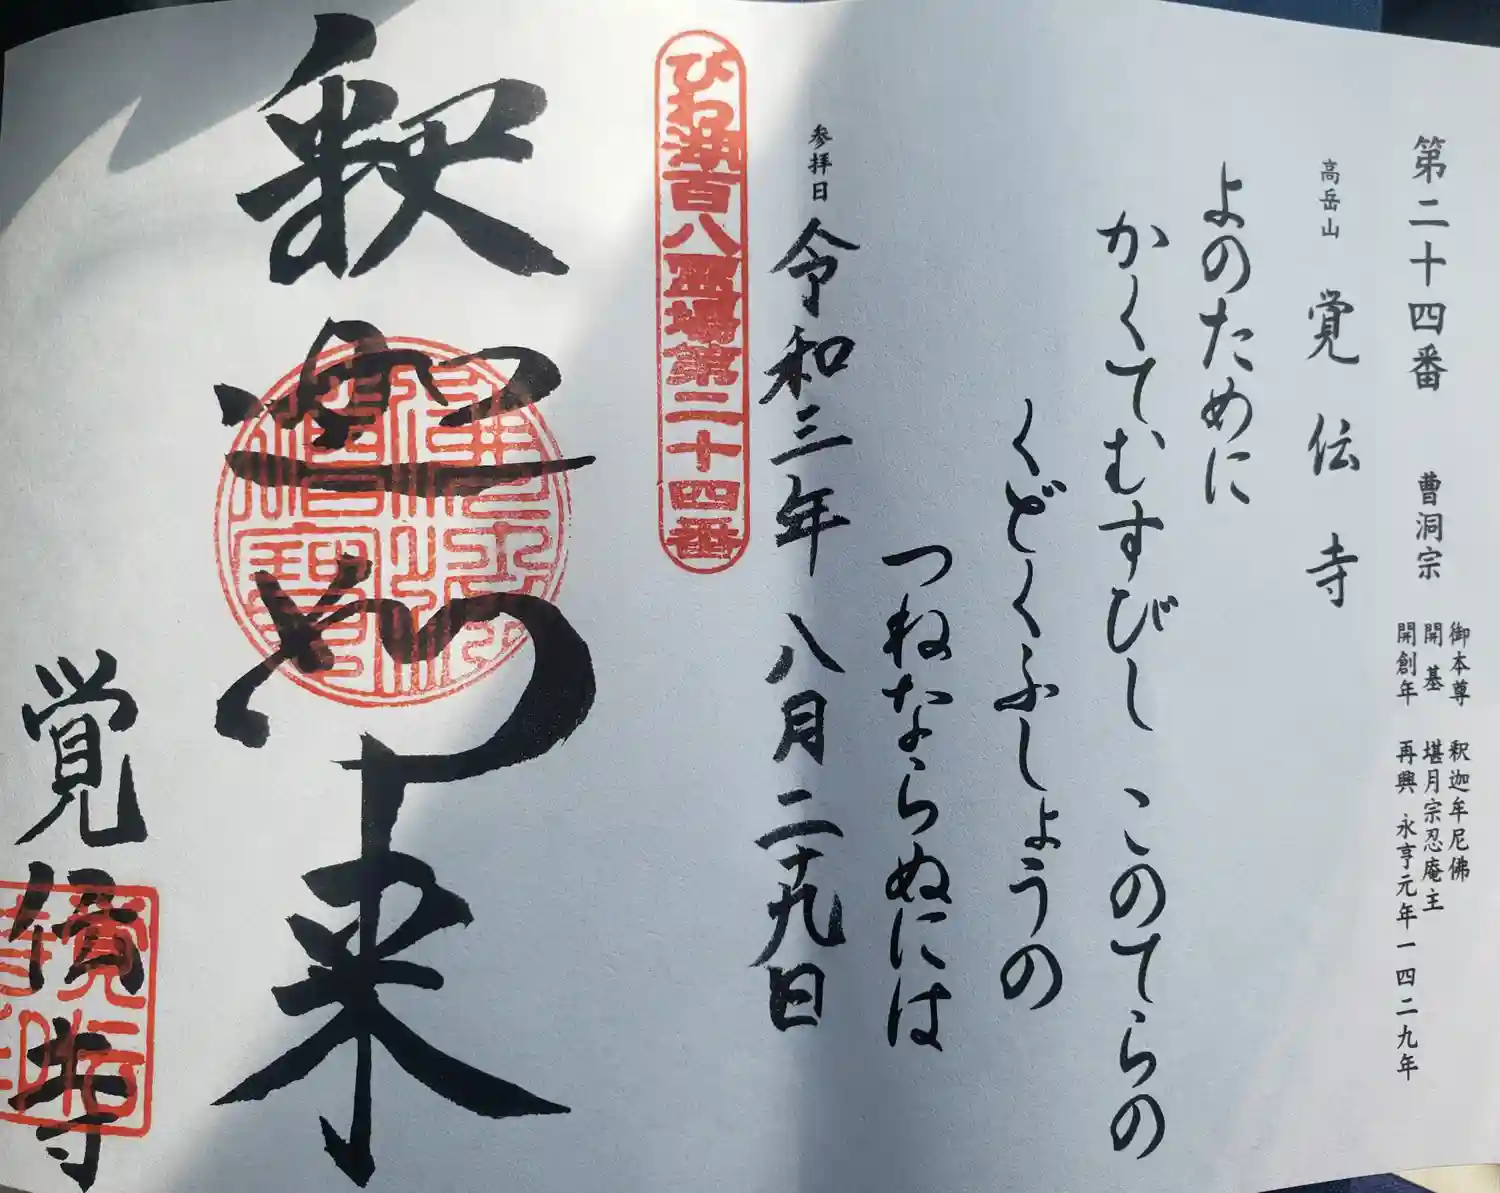 第二十四番 曹洞宗
御本尊 釈迦牟尼佛
開基 堪月宗忍庵主
開創年 再興 永亨元年一四二九年
高岳山 覚伝寺
よのために
かくてむすびし このてらの
くどくふしょうの
つねならぬには
参拝日 令和三年 八月二十九日
びわ湖百八霊場第二十四番
釈迦如来
覚傳寺